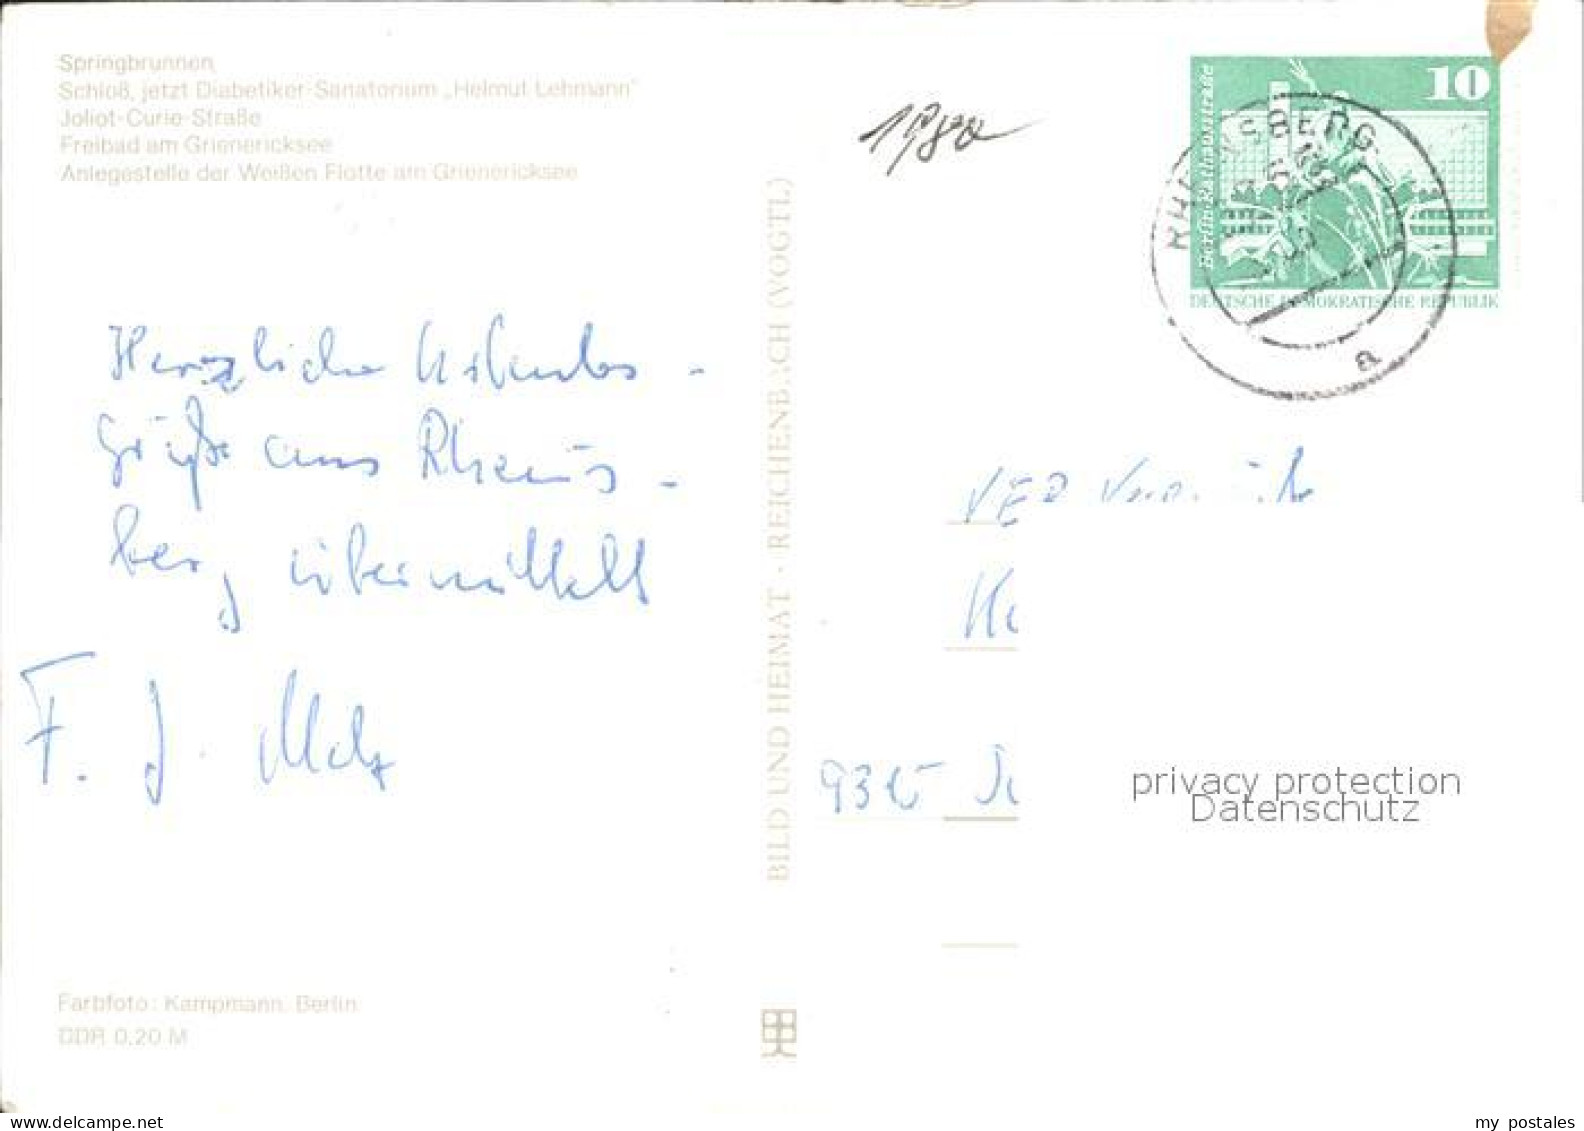 Springbrunnen
Schloß, jetzt Diabetiker-Sanatorium „Helmut Lehmann"
Joliot-Curie-Straße
Freibad am Grienericksee
Anlegestelle der Weißen Flotte am Grienericksee
Herzliche Urlaubs-
grüße aus Rheins-
berg übermittelt
F. J. Metz
Farbfoto: Kampmann, Berlin
DDR 0,20 M
BILD UND HEIMAT · REICHENBACH (VOGTL)
1980
10
Berlin-Rathausstraße
DEUTSCHE DEMOKRATISCHE REPUBLIK
RHEINSBERG
a
VEB
935
privacy protection
Datenschutz
my postales